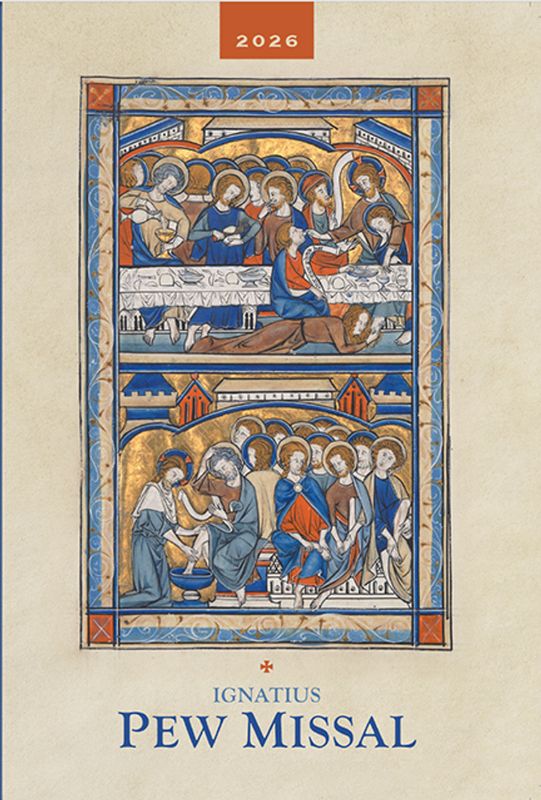 2026
IGNATIUS
PEW MISSAL